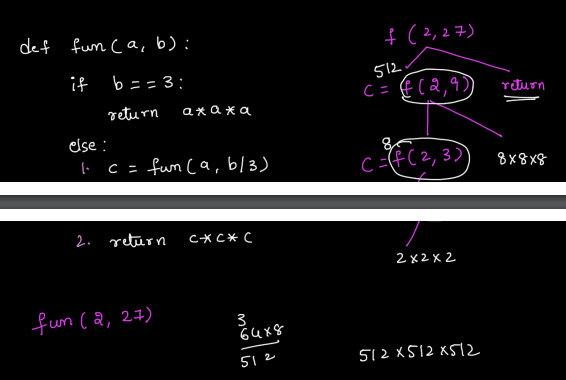 def fun(a, b):
if b == 3:
return a*a*a
else:
1. c = fun(a, b/3)
2. return c*c*c
fun(2, 27)
f(2,27)
512
c = f(2,9)
return
8
c = f(2,3)
8×8×8
2×2×2
3
64×8
512
512×512×512